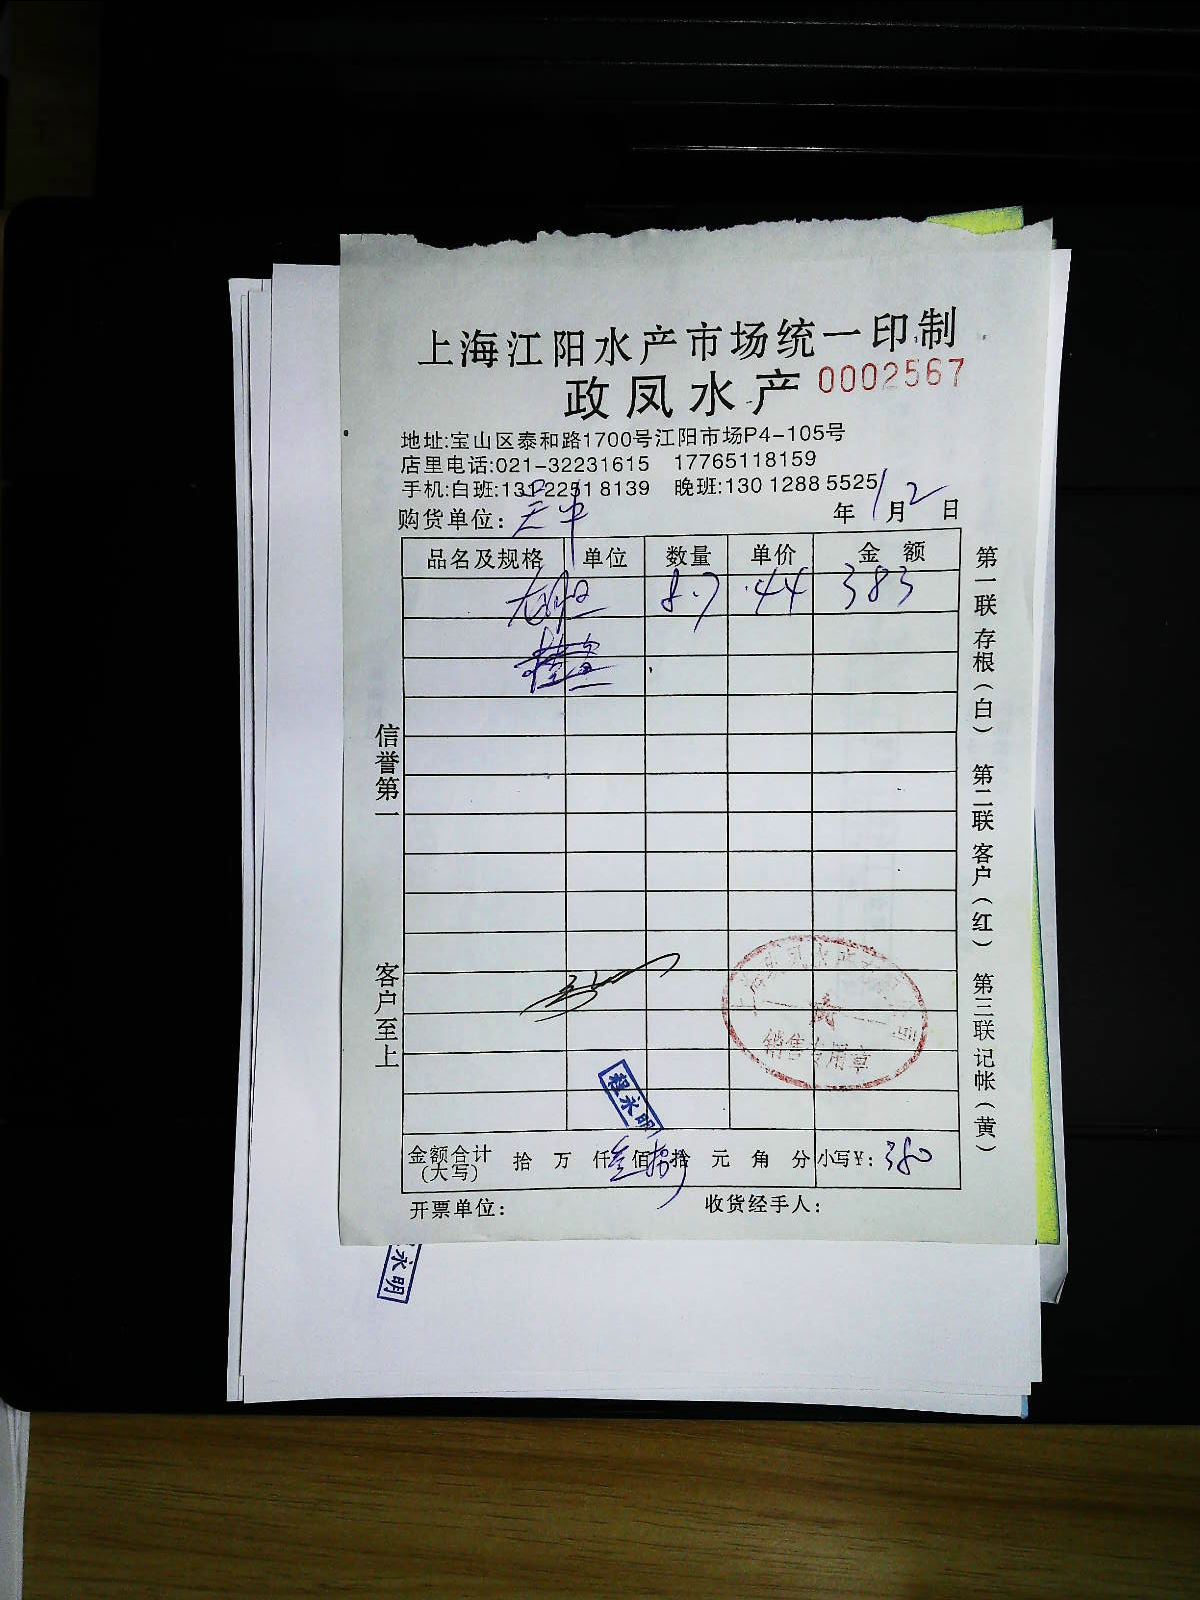 上海江阳水产市场统一印制
政凤水产 0002567
地址:宝山区泰和路1700号江阳市场P4-105号
店里电话:021-32231615 17765118159
手机:白班:131 2251 8139 晚班:130 1288 5525
购货单位: 年1月2日
品名及规格 单位 数量 单价 金额
8.7 44 383
桂鱼
信誉第一
客户至上
第一联 存根(白) 第二联 客户(红) 第三联 记帐(黄)
销售专用章
程永明
金额合计(大写) 拾 万 仟 叁 佰 捌 拾 元 角 分 小写¥: 380
开票单位: 收货经手人:
永明